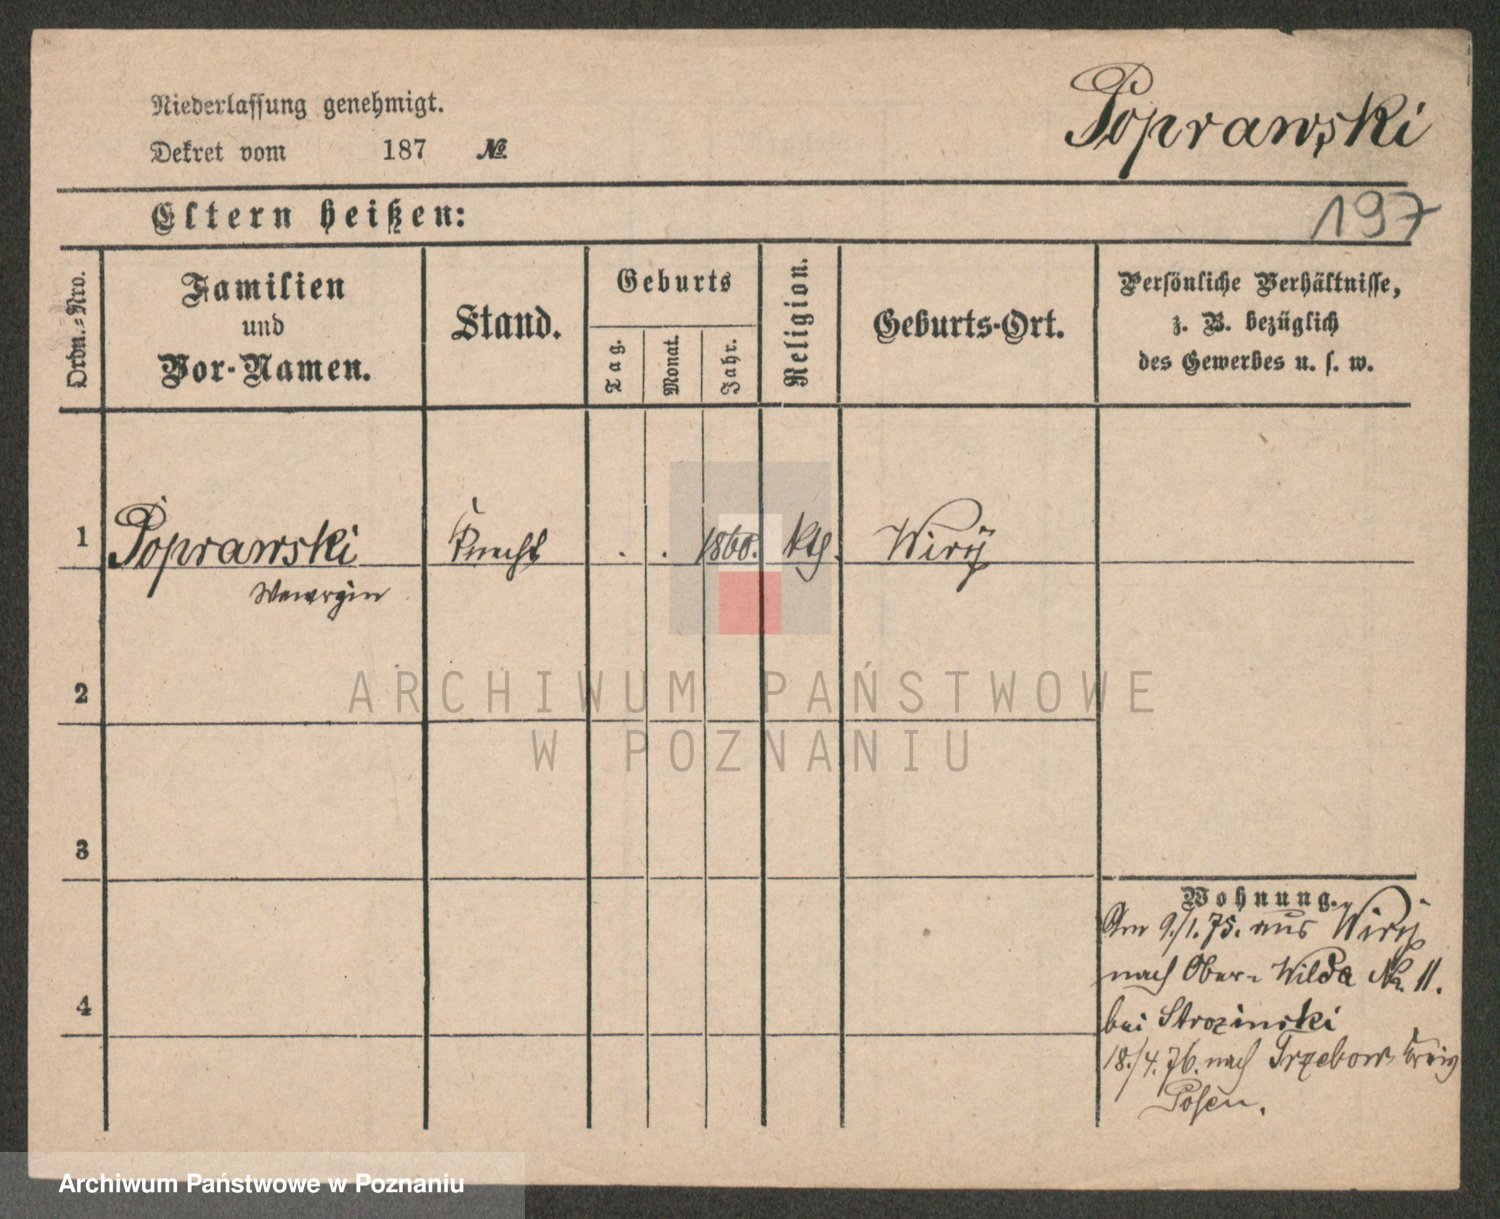 Niederlassung genehmigt.
Poprawski
Dekret vom 187 №
197
Eltern heißen:
Ordn.=Nro.
Familien
und
Vor-Namen.
Stand.
Geburts
Tag.
Monat.
Jahr.
Religion.
Geburts-Ort.
Persönliche Verhältnisse,
z. B. bezüglich
des Gewerbes u. s. w.
1 Poprawski Knecht . . 1860. kth. Wiry
2
ARCHIWUM PAŃSTWOWE
W POZNANIU
3
Wohnung.
Am 9./1.75. aus Wiry
nach Ober- Wilda No. 11.
4
bei Strozinski
18./4.76. nach Trzebow Kreis
Posen.
Archiwum Państwowe w Poznaniu